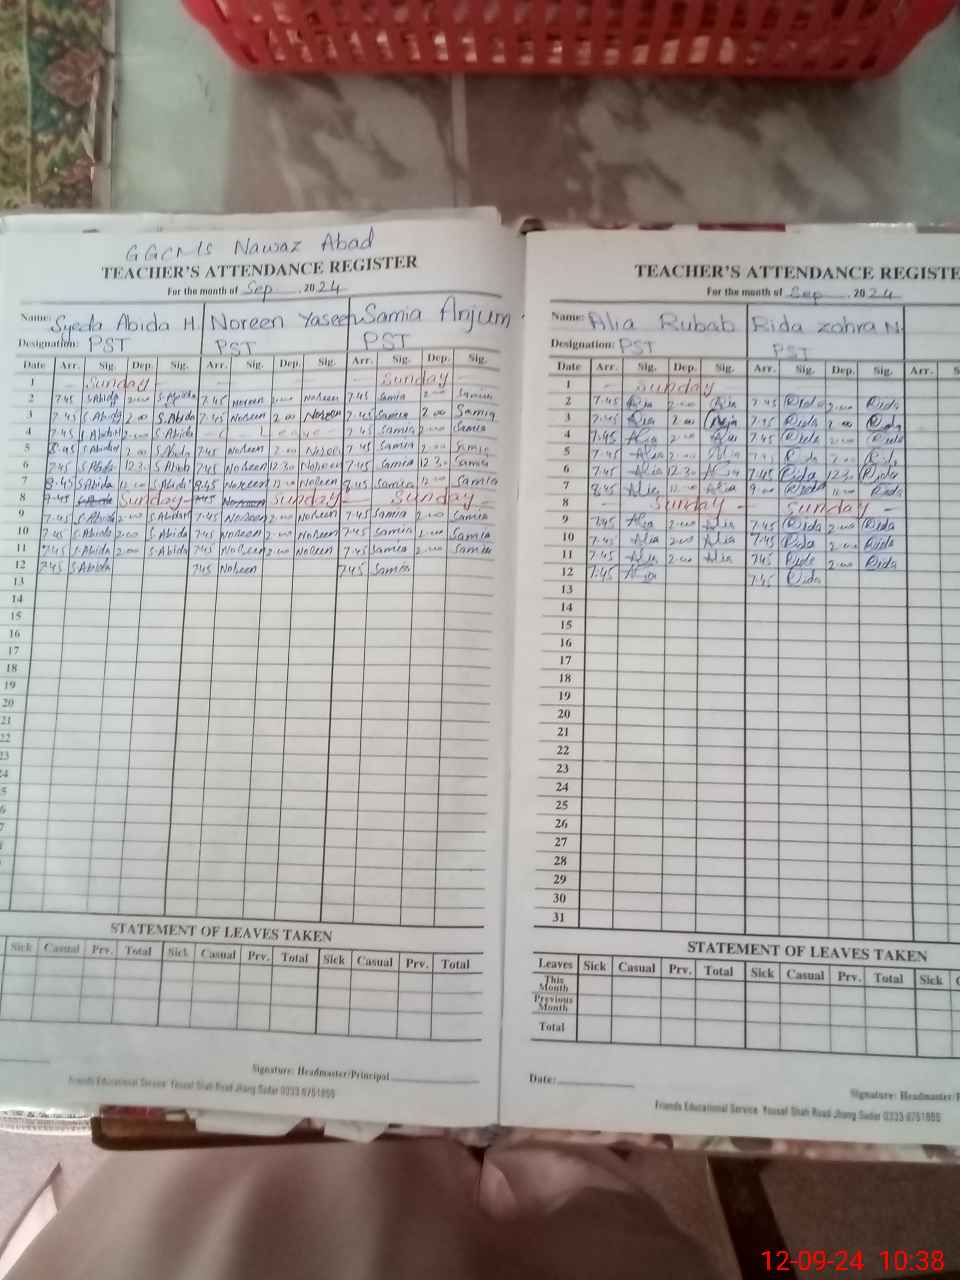 GGCMS Nawaz Abad
TEACHER'S ATTENDANCE REGISTER
For the month of Sep 2024
Name: Syeda Abida H. Noreen Yaseen Samia Anjum
Designation: PST PST PST
Date Arr. Sig. Dep. Sig. Arr. Sig. Dep. Sig. Arr. Sig. Dep. Sig.
1 Sunday Sunday
2 7.45 S.Abida 2.00 S.Abida 7.45 Noreen 2.00 Noreen 7.45 Samia 2.00 Samia
3 7.45 S.Abida 2.00 S.Abida 7.45 Noreen 2.00 Noreen 7.45 Samia 2.00 Samia
4 7.45 S.Abida 2.00 S.Abida Leave 7.45 Samia 2.00 Samia
5 S.Abida 2.00 S.Abida 7.45 Noreen 2.00 Noreen 7.45 Samia 2.00 Samia
6 7.45 S.Abida 12.30 S.Abida 7.45 Noreen 12.30 Noreen 7.45 Samia 12.30 Samia
7 8.45 S.Abida 12.00 S.Abida 8.45 Noreen 12.00 Noreen Samia 12.00 Samia
8 Sunday Sunday Sunday
9 7.45 S.Abida 2.00 S.Abida 7.45 Noreen 2.00 Noreen 7.45 Samia 2.00 Samia
10 7.45 S.Abida 2.00 S.Abida 7.45 Noreen 2.00 Noreen 7.45 Samia 2.00 Samia
11 7.45 S.Abida 2.00 S.Abida 7.45 Noreen 2.00 Noreen 7.45 Samia 2.00 Samia
12 7.45 S.Abida 7.45 Noreen 7.45 Samia
13
14
15
16
17
18
19
20
21
22
23
24
5
6
7
STATEMENT OF LEAVES TAKEN
Sick Casual Prv. Total Sick Casual Prv. Total Sick Casual Prv. Total
Signature: Headmaster/Principal
Friends Educational Service Yousaf Shah Road Jhang Sadar 0333 6751855
TEACHER'S ATTENDANCE REGISTE
For the month of Sep 2024
Name: Alia Rubab Rida Zahra N.
Designation: PST PST
Date Arr. Sig. Dep. Sig. Arr. Sig. Dep. Sig. Arr. S
1 Sunday
2 7.45 Alia 2.00 Alia 7.45 Rida 2.00 Rida
3 7.45 Alia 2.00 Alia 7.45 Rida 2.00 Rida
4 7.45 Alia 2.00 Alia 7.45 Rida 2.00 Rida
5 7.45 Alia 2.00 Alia 7.45 Rida 2.00 Rida
6 7.45 Alia 12.30 Alia 7.45 Rida 12.30 Rida
7 8.45 Alia Alia 9.00 Rida Rida
8 Sunday Sunday
9 7.45 Alia 2.00 Alia 7.45 Rida 2.00 Rida
10 7.45 Alia 2.00 Alia 7.45 Rida 2.00 Rida
11 7.45 Alia 2.00 Alia 7.45 Rida 2.00 Rida
12 7.45 Alia 7.45 Rida
13
14
15
16
17
18
19
20
21
22
23
24
25
26
27
28
29
30
31
STATEMENT OF LEAVES TAKEN
Leaves Sick Casual Prv. Total Sick Casual Prv. Total Sick C
This Month
Previous Month
Total
Date:
Signature: Headmaster/P
Friends Educational Service Yousaf Shah Road Jhang Sadar 0333 6751855
12-09-24 10:38